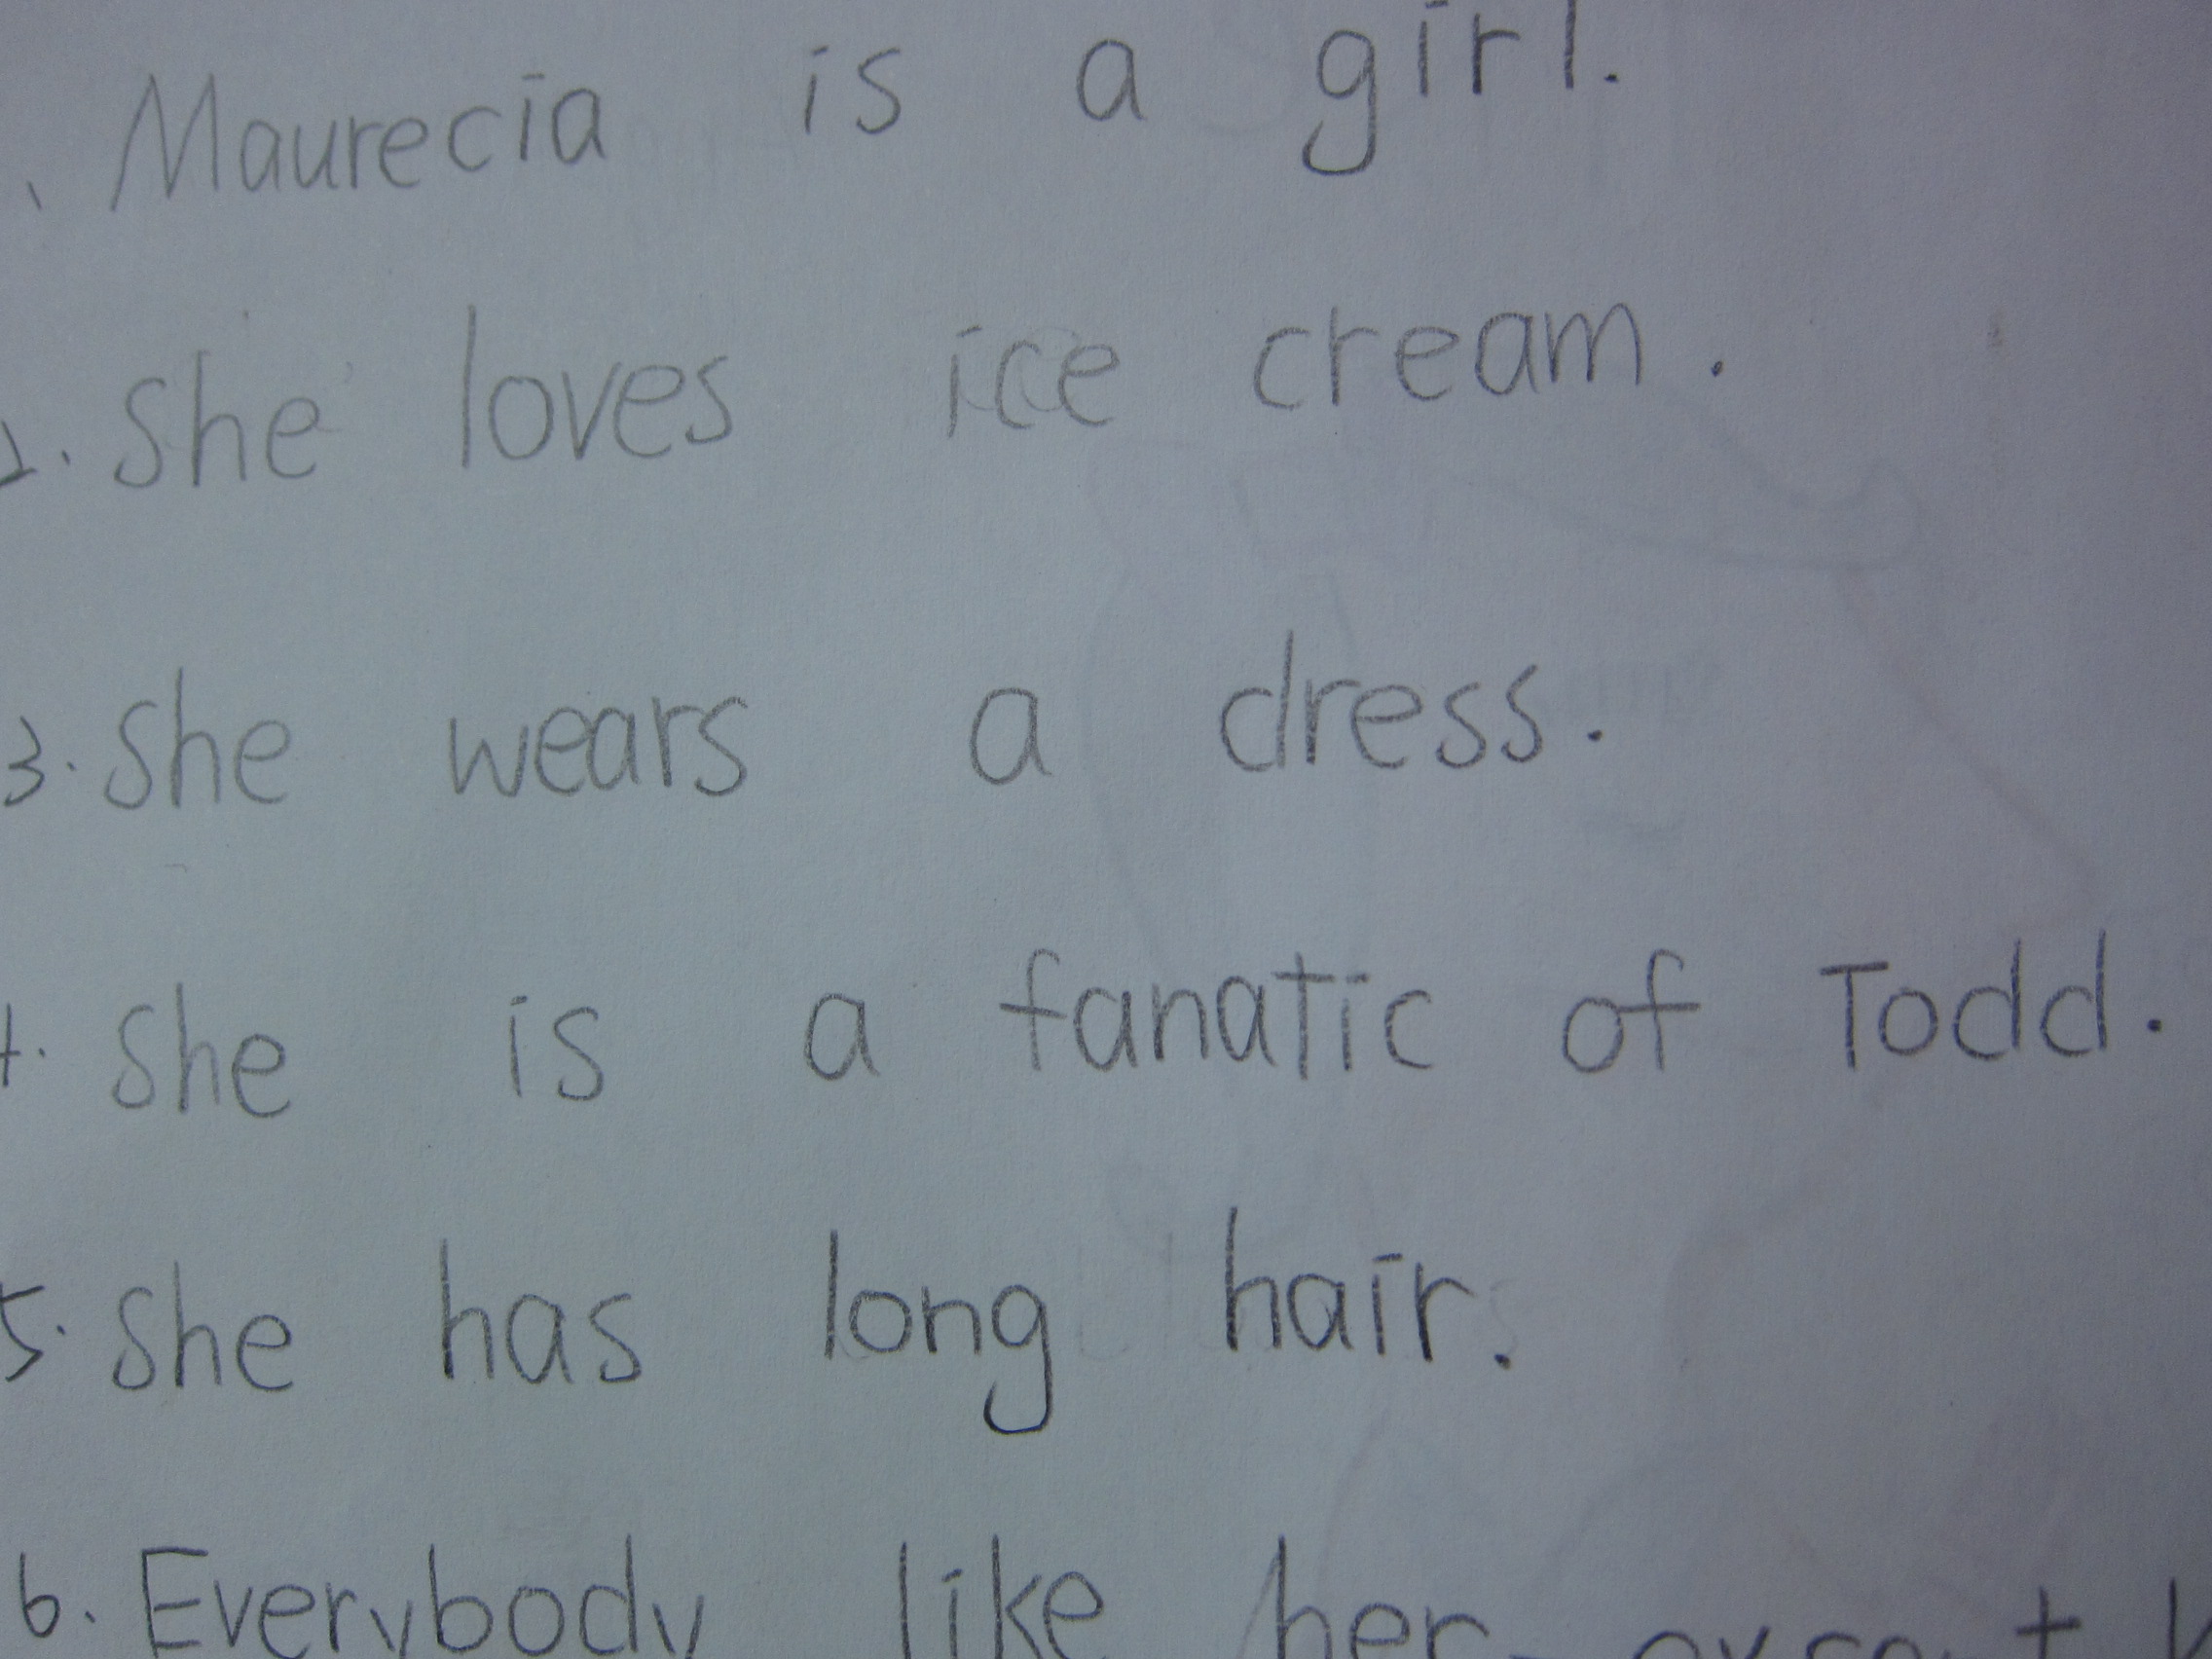 . Maurecia is a girl.
2. She loves ice cream.
3. She wears a dress.
4. She is a fanatic of Todd.
5. She has long hair.
6. Everybody like her